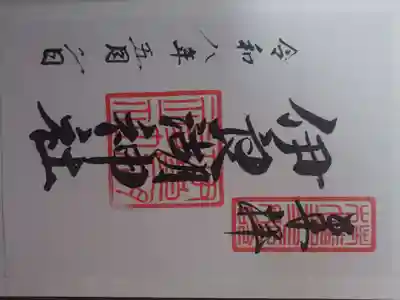 奉拝
伊良湖神社
令和八年五月二日